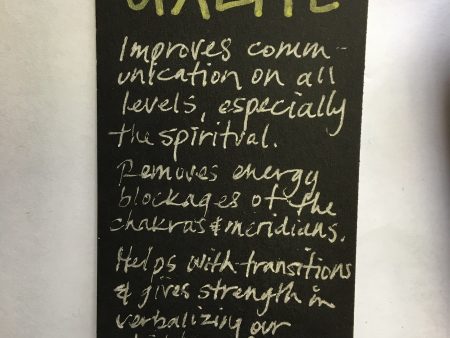 Improves comm-
unication on all
levels, especially
the spiritual.
Removes energy
blockages of the
chakras & meridians.
Helps with transitions
& gives strength in
verbalizing our